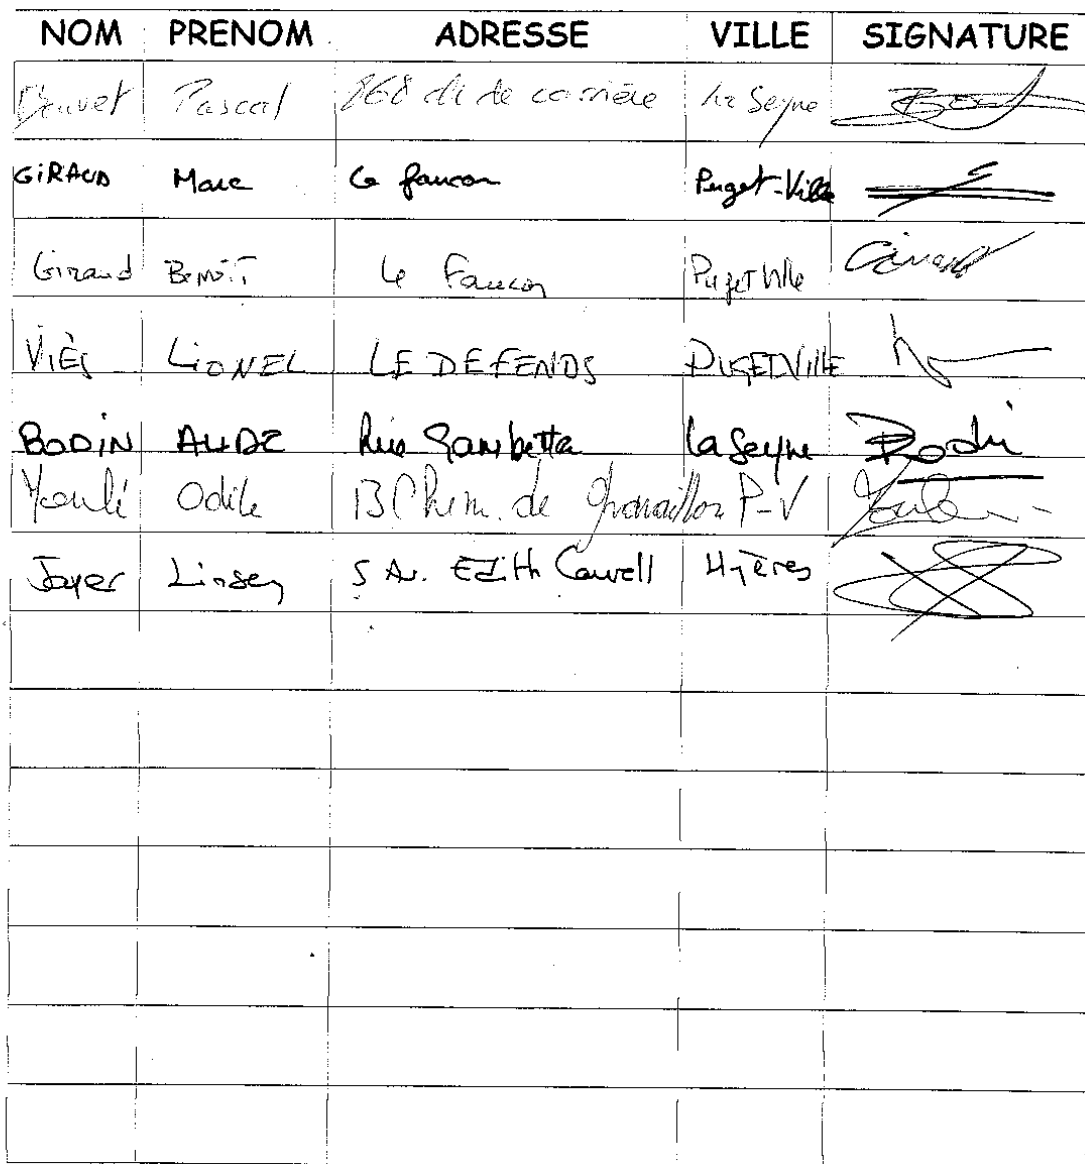 NOM PRENOM ADRESSE VILLE SIGNATURE
Pascal 868 de carrière La Seyne
GIRAUD Marc Le faucon Puget-Ville
Giraud Benoît Le Faucon Puget Ville
VIÈS LIONEL LE DEFENDS PUGETVILLE
BODIN AUDE Rue Gambetta La Seyne Bodin
Odile 13 Chem. de P-V
Joyer Linsey 5 Av. Edith Cavell Hyères